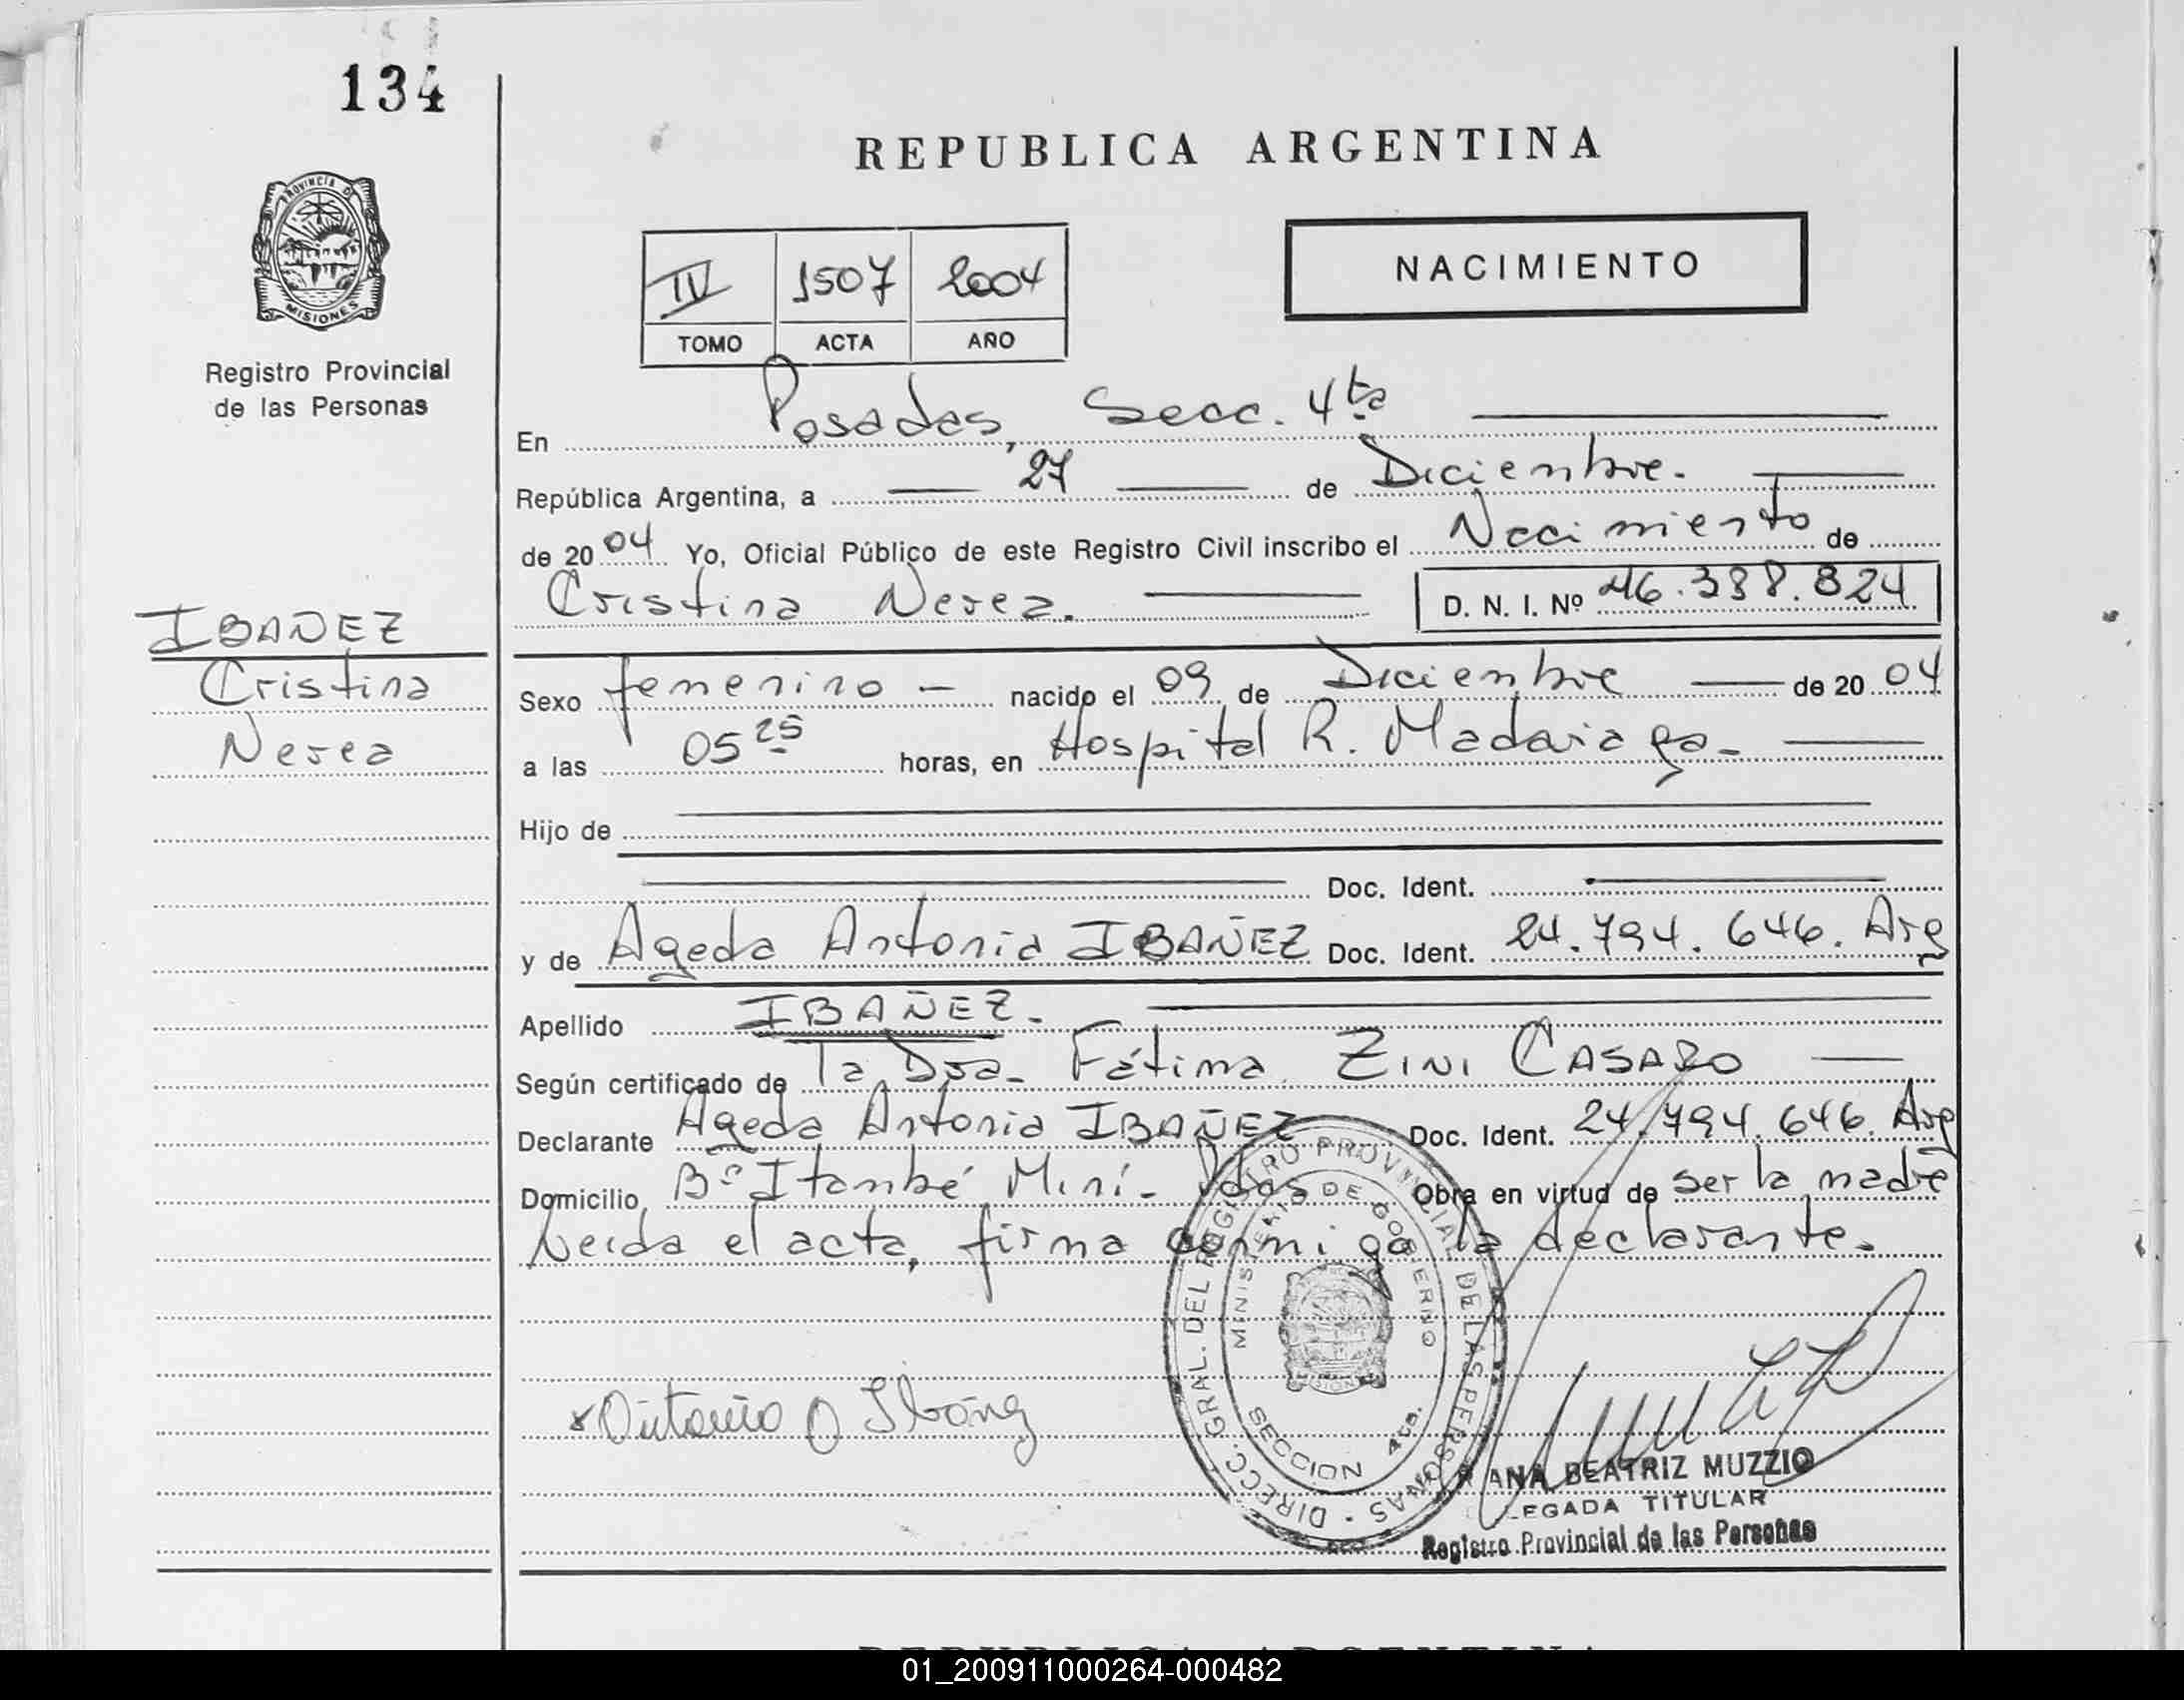 134
REPUBLICA ARGENTINA
PROVINCIA DE
MISIONES
Registro Provincial
de las Personas
IV 1507 2004
TOMO ACTA AÑO
NACIMIENTO
En Posadas, Secc. 4ta
República Argentina, a 27 de Diciembre.
de 2004 Yo, Oficial Público de este Registro Civil inscribo el Nacimiento de
Cristina Nerea. D. N. I. Nº 46.338.824
IBAÑEZ
Cristina
Nerea
Sexo femenino - nacido el 09 de Diciembre de 2004
a las 05 25 horas, en Hospital R. Madariaga-
Hijo de
Doc. Ident.
y de Ageda Antonia IBAÑEZ Doc. Ident. 24.794.646. Arg
Apellido IBAÑEZ.
Según certificado de la Dra. Fátima ZINI CASARO
Declarante Ageda Antonia IBAÑEZ Doc. Ident. 24.794.646. Arg
Domicilio Bº Itambé Miní- Pdas Obra en virtud de ser la madre
Leida el acta, firma conmigo la declarante.
DIRECC. GRAL. DEL REGISTRO PROVINCIAL DE LAS PERSONAS
MINISTERIO DE GOBIERNO
MISIONES
SECCION 4ta.
ANA BEATRIZ MUZZIO
LEGADA TITULAR
Registro Provincial de las Personas
REPUBLICA ARGENTINA
01_200911000264-000482